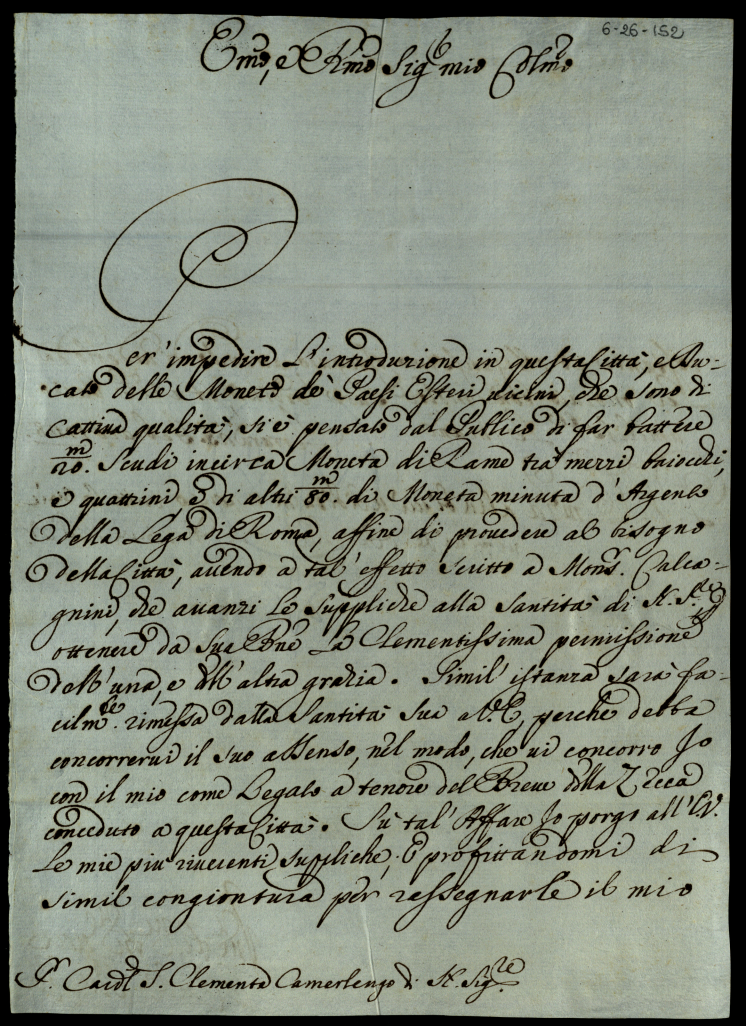 6-26-152
Emo, e Rmo Sigr mio Colmo
Per' impedire l'introduzione in questa Città, e Du-
cato delle Monete de' Paesi Esteri vicini, che sono di
cattiva qualità, si è pensato dal Publico di far battere
m/20. Scudi incirca Moneta di Rame trà mezzi baiocchi,
e quattrini, e di altri m/80. di Moneta minuta d'Argento
della Lega di Roma, affine di provedere al bisogno
della Città, avendo a tal' effetto scritto a Monsr. Calca-
gnini, che avanzi le suppliche alla Santità di N. Sre p
ottenere da Sua Bne la Clementissima permissione
dell'una, e dell'altra grazia. Simil' istanza sarà fa-
cilmte. rimessa dalla Santità Sua a V.E, perche debba
concorrervi il suo assenso, nel modo, che vi concorro Io
con il mio come Legato a tenore del Breve della Zecca
conceduto a questa Città. Sù tal' Affare Io porgo all'E.V.
le mie più riverenti suppliche; E profittandomi di
simil congiontura per rassegnarle il mio
Sr. Cardl S. Clemente Camerlengo di N. Sigre